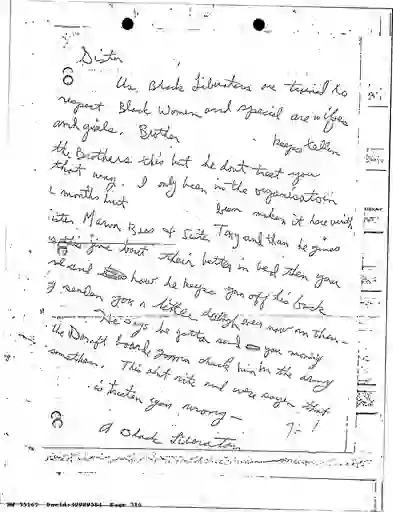 Sister
Us, Black Liberators are trained to
respect Black Women and special are wifes
and girls. Brother keeps tellen
the Brothers this but he dont treat you
that way. I only been in the organisation
2 months but been maken it here with
ister Marva Bass & Sister Tony and than he gives
us this jive bout their better in bed then you
are and how he keeps you off his back
by senden you a little dough ever now an then -
He says he gotta send you money
the Draft board gonna chuck him in the army
somethen. This aint rite and were sayen that
is treaten you wrong -
A Black Liberator
HW 55165 DocId:32989584 Page 316